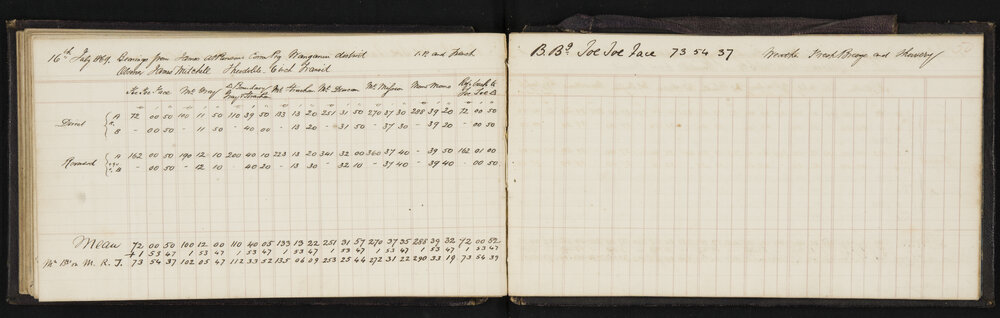 16th July 1869. Bearings from James Atkinsons Corn Rig Wanganui district
Observer James Mitchell Theodolite Cinch Transit
Joe Joe Face Mr Gray Mr Duncan Mr Mason Mares Moons
Direct A 72 00 50 100 11 50 110 39 50 133 13 20 251 31 50 270 37 30 288 39 20 72 00 50
B - 00 50 - 11 50 - 40 00 - 13 20 - 31 50 - 37 30 - 39 20 - 00 50
A 162 00 50 190 12 10 200 40 10 223 13 20 341 32 00 360 37 40 - 39 50 162 01 00
B - 00 50 - 12 10 - 40 20 - 13 30 - 32 10 - 37 40 - 39 40 - 00 50
Mean 72 00 50 100 12 00 110 40 05 133 13 22 251 31 57 270 37 35 288 39 32 72 00 52
+ 1 53 47 1 53 47 1 53 47 1 53 47 1 53 47 1 53 47 1 53 47
M. R. T. 73 54 37 102 05 47 112 33 52 135 06 09 253 25 44 272 31 22 290 33 19 73 54 39
B. Bg Joe Joe Face 73 54 37 Weather Fresh Breeze and Showery